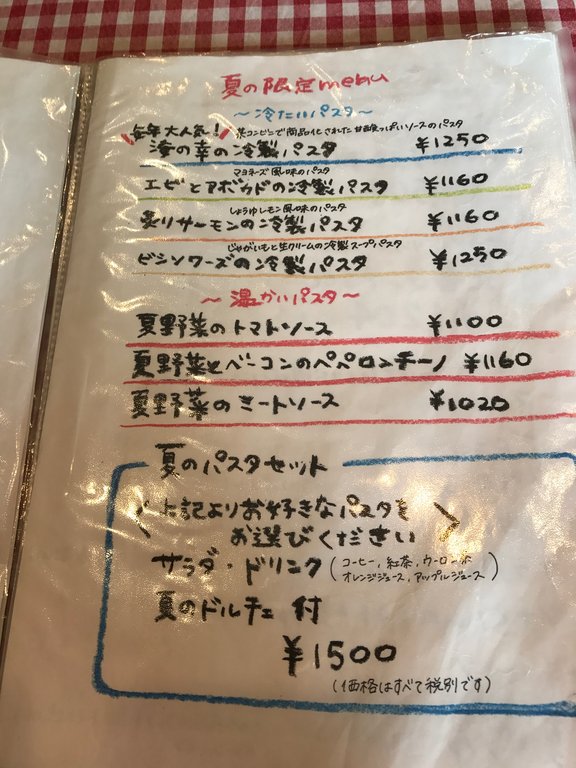 夏の限定menu
～冷たいパスタ～
毎年大人気！
某コンビニで商品化された甘酸っぱいソースのパスタ
海の幸の冷製パスタ ¥1250
マヨネーズ風味のパスタ
エビとアボカドの冷製パスタ ¥1160
しょうゆレモン風味のパスタ
炙りサーモンの冷製パスタ ¥1160
じゃがいもと生クリームの冷製スープパスタ
ビシソワーズの冷製パスタ ¥1250
～温かいパスタ～
夏野菜のトマトソース ¥1100
夏野菜とベーコンのペペロンチーノ ¥1160
夏野菜のミートソース ¥1020
夏のパスタセット
上記よりお好きなパスタを
お選びください
サラダ・ドリンク（コーヒー, 紅茶,
オレンジジュース, アップルジュース）
夏のドルチェ 付
¥1500
（価格はすべて税別です）